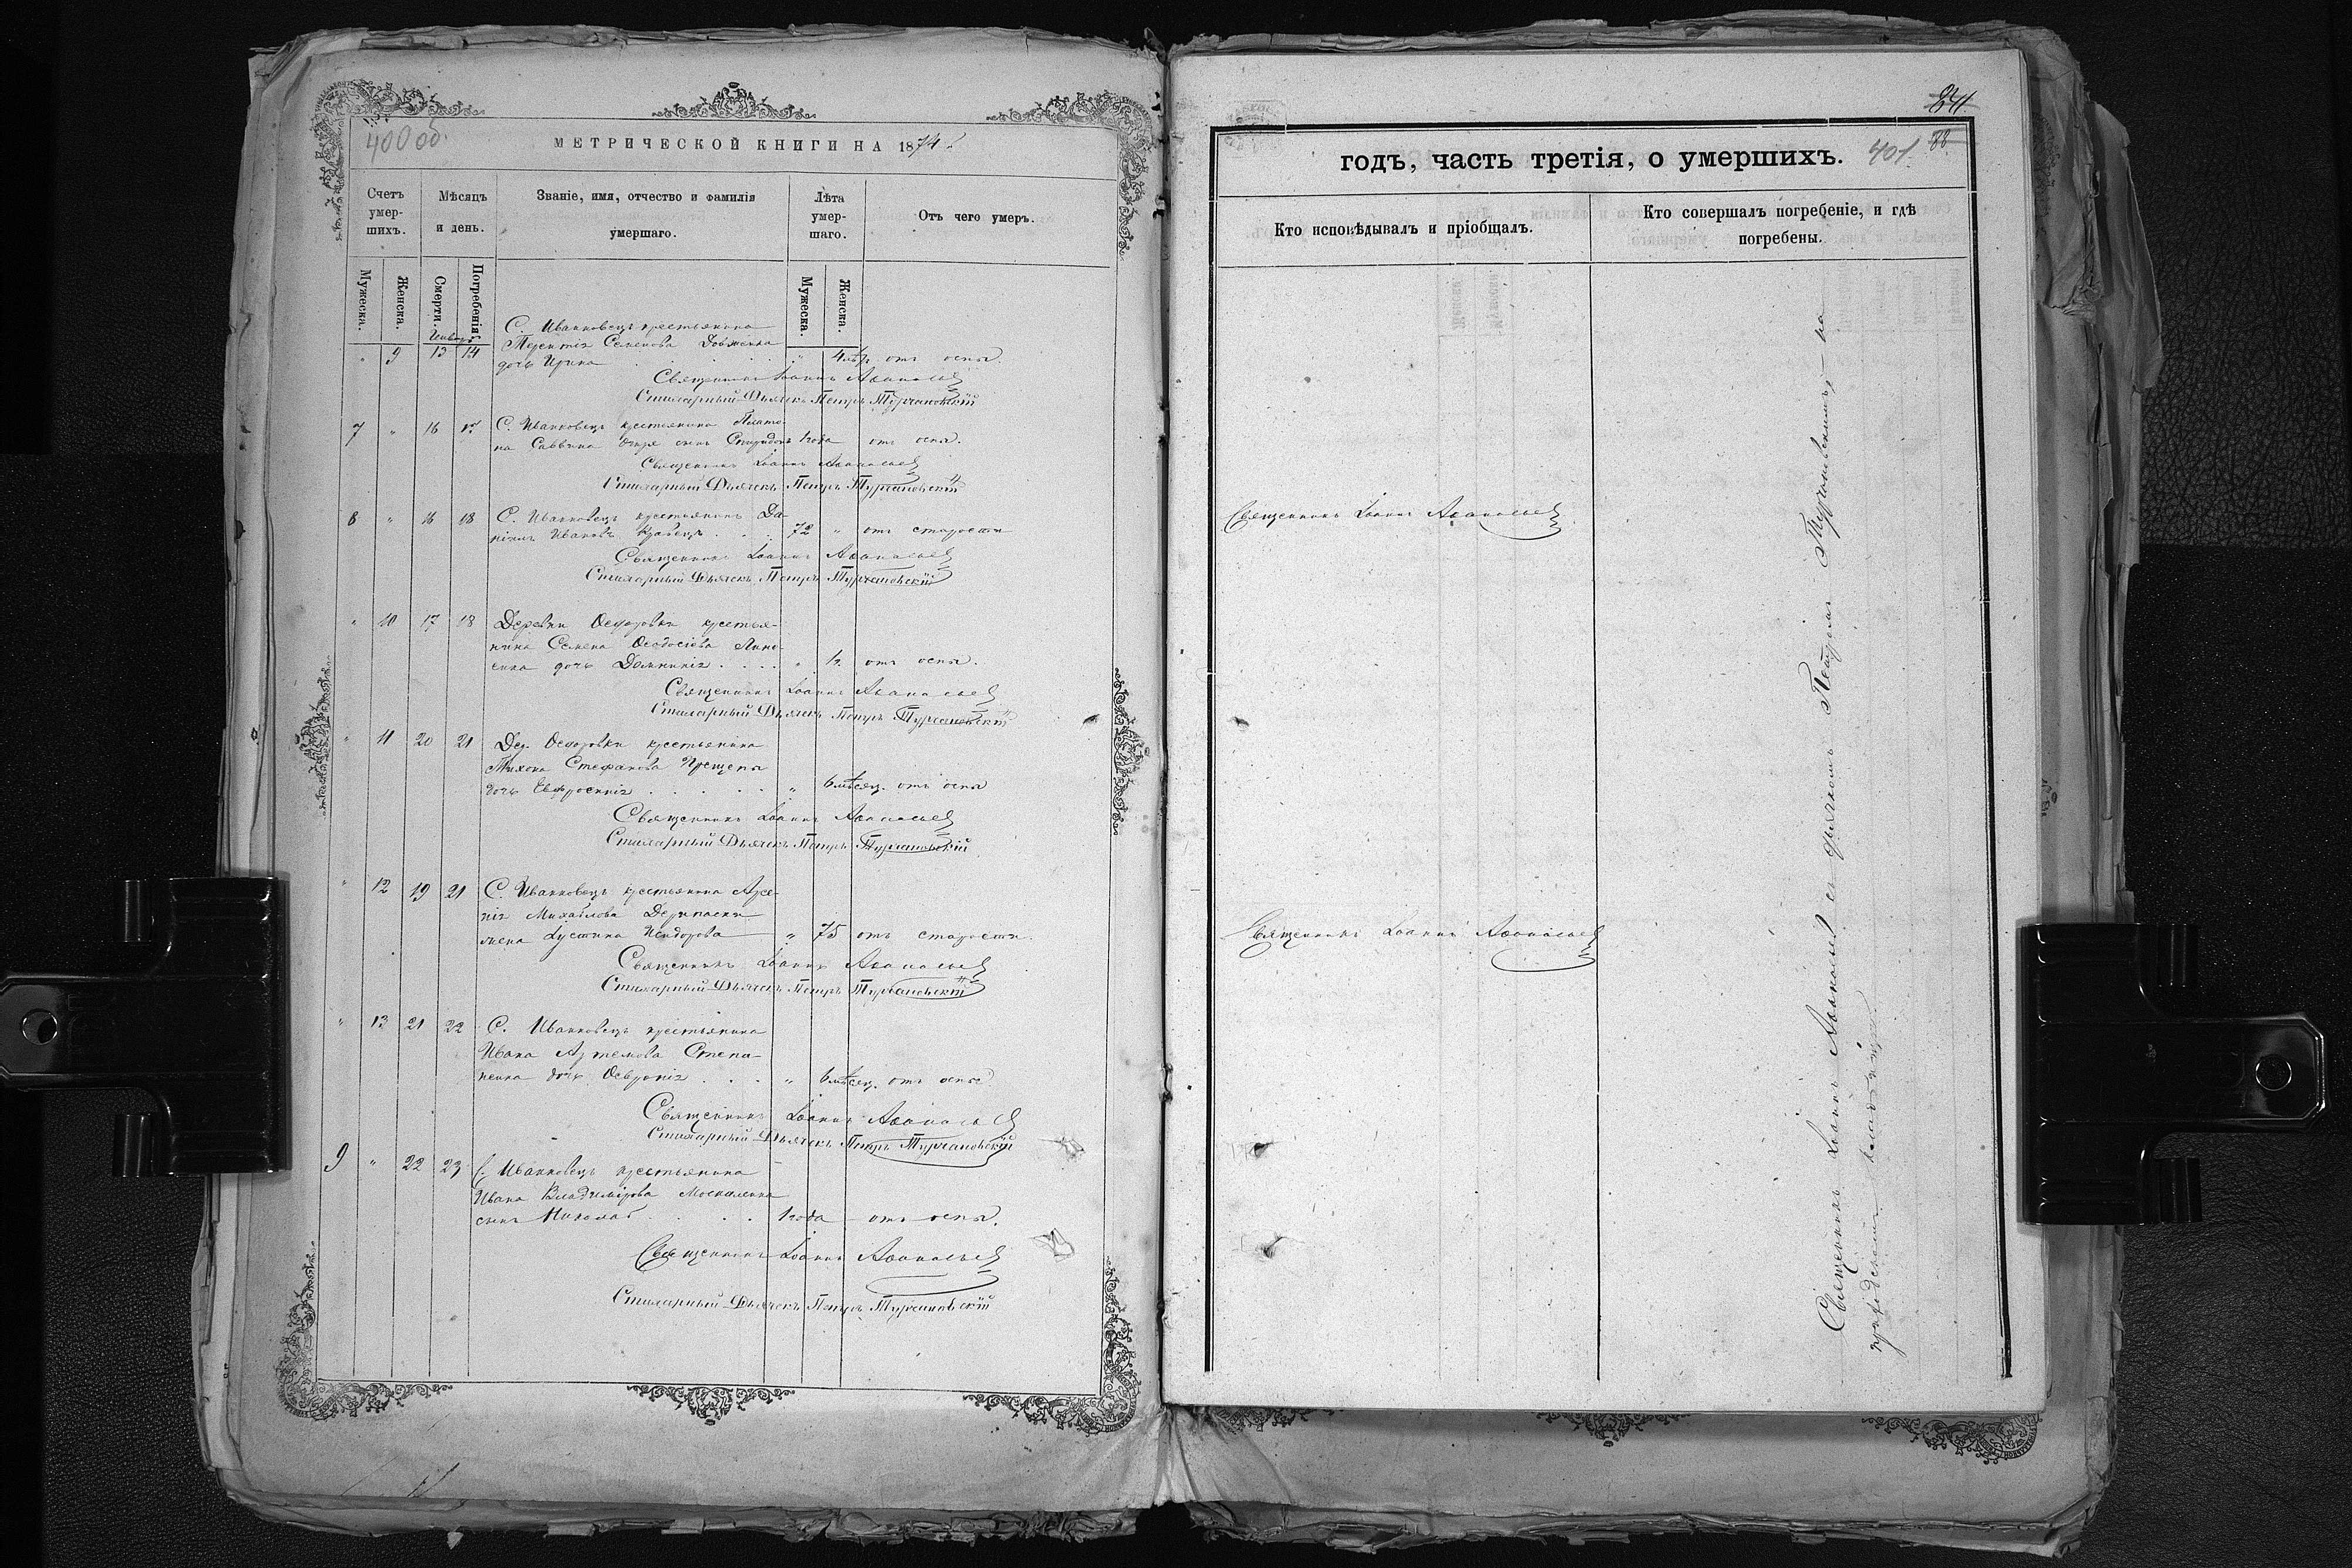 400 об.
МЕТРИЧЕСКОЙ КНИГИ НА 1874
Счетъ умер-шихъ.
Мѣсяцъ и день.
Званіе, имя, отчество и фамилія умершаго.
Лѣта умер-шаго.
Отъ чего умеръ.
Мужеска.
Женска.
Смерти.
Погребенія.
Мужеска.
Женска.
Январь
С. Иванковецъ крестьянина
Терентія Семенова Довженка
" 9 13 14 дочь Ирина " 4 отъ оспы.
Священникъ Іоаннъ Аѳанасьевъ
Стихарный Дьячекъ Петръ Турчановскій
7 " 16 17 С. Иванковецъ крестьянина Плато-
на Саввина сынъ Спиридонъ 1 года отъ оспы.
Священникъ Іоаннъ Аѳанасьевъ
Стихарный Дьячекъ Петръ Турчановскій
8 " 16 18 С. Иванковецъ крестьянинъ Да-
ніилъ Ивановъ Кравецъ 72 " отъ старости
Священникъ Іоаннъ Аѳанасьевъ
Стихарный Дьячекъ Петръ Турчановскій
" 10 17 18 Деревни Ѳедоровки крестья-
нина Семена Ѳеодосіева
дочь Домникія " 1 г. отъ оспы.
Священникъ Іоаннъ Аѳанасьевъ
Стихарный Дьячекъ Петръ Турчановскій
" 11 20 21 Дер. Ѳедоровки крестьянина
Тихона Стефанова
дочь Евфросинія " 6 мѣсяц. отъ оспы
Священникъ Іоаннъ Аѳанасьевъ
Стихарный Дьячекъ Петръ Турчановскій
" 12 19 21 С. Иванковецъ крестьянина Арсе-
нія Михайлова Дерипаски
жена Іустина Исидорова " 75 отъ старости.
Священникъ Іоаннъ Аѳанасьевъ
Стихарный Дьячекъ Петръ Турчановскій
" 13 21 22 С. Иванковецъ крестьянина
Ивана Артемова Степа-
ненка дочь Ѳевронія " 6 мѣсяц. отъ оспы
Священникъ Іоаннъ Аѳанасьевъ
Стихарный Дьячекъ Петръ Турчановскій
9 " 22 23 С. Иванковецъ крестьянина
Ивана Владимірова Москаленка
сынъ Николай 1 года отъ оспы.
Священникъ Іоаннъ Аѳанасьевъ
Стихарный Дьячекъ Петръ Турчановскій
годъ, часть третія, о умершихъ.
401.
Кто исповѣдывалъ и пріобщалъ.
Кто совершалъ погребеніе, и гдѣ погребены.
Священникъ Іоаннъ Аѳанасьевъ
Священникъ Іоаннъ Аѳанасьевъ
Священникъ Іоаннъ Аѳанасьевъ съ дьячкомъ Петромъ Турчановскимъ, на
приходскомъ кладбищѣ.